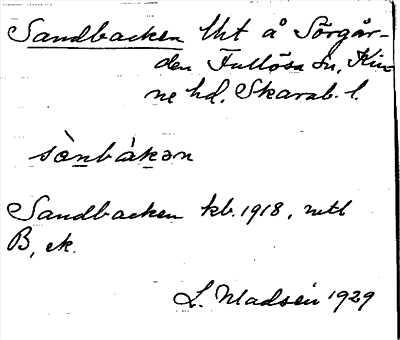 Sandbacken lht å Sörgår-
den Fullösa sn, Kin-
ne hd. Skarab. l.
sànbákən
Sandbacken kb. 1918, mtl
B, ek.
L. Madsén 1929